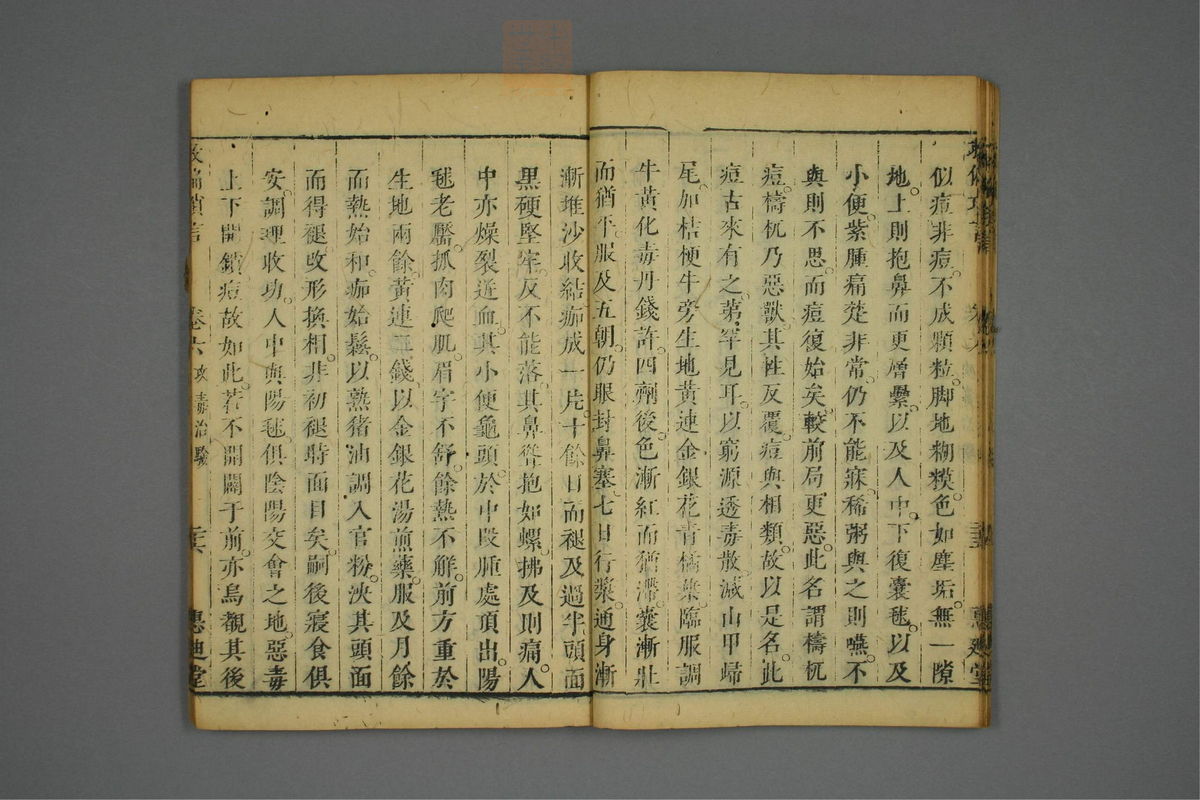 似痘非痘。不成顆粒。脚地糊糢。色如塵垢。無一隙
地。上則抱鼻而更層纍。以及人中。下復囊毬。以及
小便。紫腫痛楚非常。仍不能寐。稀粥與之則嚥。不
與則不思。而痘復始矣。較前局更惡。此名謂檮杌
痘。檮杌乃惡獸。其性反覆。痘與相類。故以是名。此
痘古來有之。第罕見耳。以窮源透毒散。減山甲歸
尾。加桔梗牛旁生地黃連金銀花青橘葉。臨服調
牛黃化毒丹錢許。四劑後。色漸紅而猶滯。囊漸壯
而猶平。服及五朝。仍眼封鼻塞。七日行漿。通身漸
漸堆沙收結痂成一片。十餘日而褪及過半。頭面
黑硬堅牢。反不能落。其鼻聳抱如螺。拂及則痛。人
中亦燥裂迸血。其小便龜頭。於中段腫處頂出。陽
毬老靨。抓肉爬肌。眉宇不舒。餘熱不解。前方重於
生地兩餘。黃連三錢。以金銀花湯煎藥。服及月餘
而熱始和。痂始鬆。以熟猪油調入官粉。泱其頭面
而得褪。改形換相。非初褪時面目矣。嗣後寢食俱
安。調理收功。人中與陽毬。俱陰陽交會之地。惡毒
上下開鎖。痘故如此。若不開關于前。亦烏覩其後
救偏瑣言 卷六 攻毒治驗 三六 惠迪堂